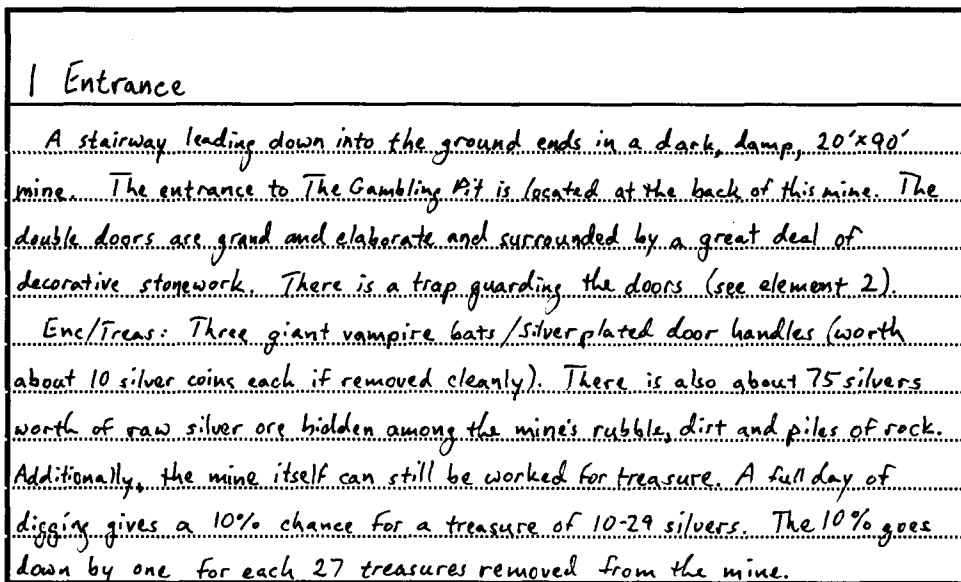 1 Entrance
A stairway leading down into the ground ends in a dark, damp, 20'x90'
mine. The entrance to The Gambling Pit is located at the back of this mine. The
double doors are grand and elaborate and surrounded by a great deal of
decorative stonework. There is a trap guarding the doors (see element 2).
Enc/Treas: Three giant vampire bats/Silver plated door handles (worth
about 10 silver coins each if removed cleanly). There is also about 75 silvers
worth of raw silver ore hidden among the mine's rubble, dirt and piles of rock.
Additionally, the mine itself can still be worked for treasure. A full day of
digging gives a 10% chance for a treasure of 10-29 silvers. The 10% goes
down by one for each 27 treasures removed from the mine.